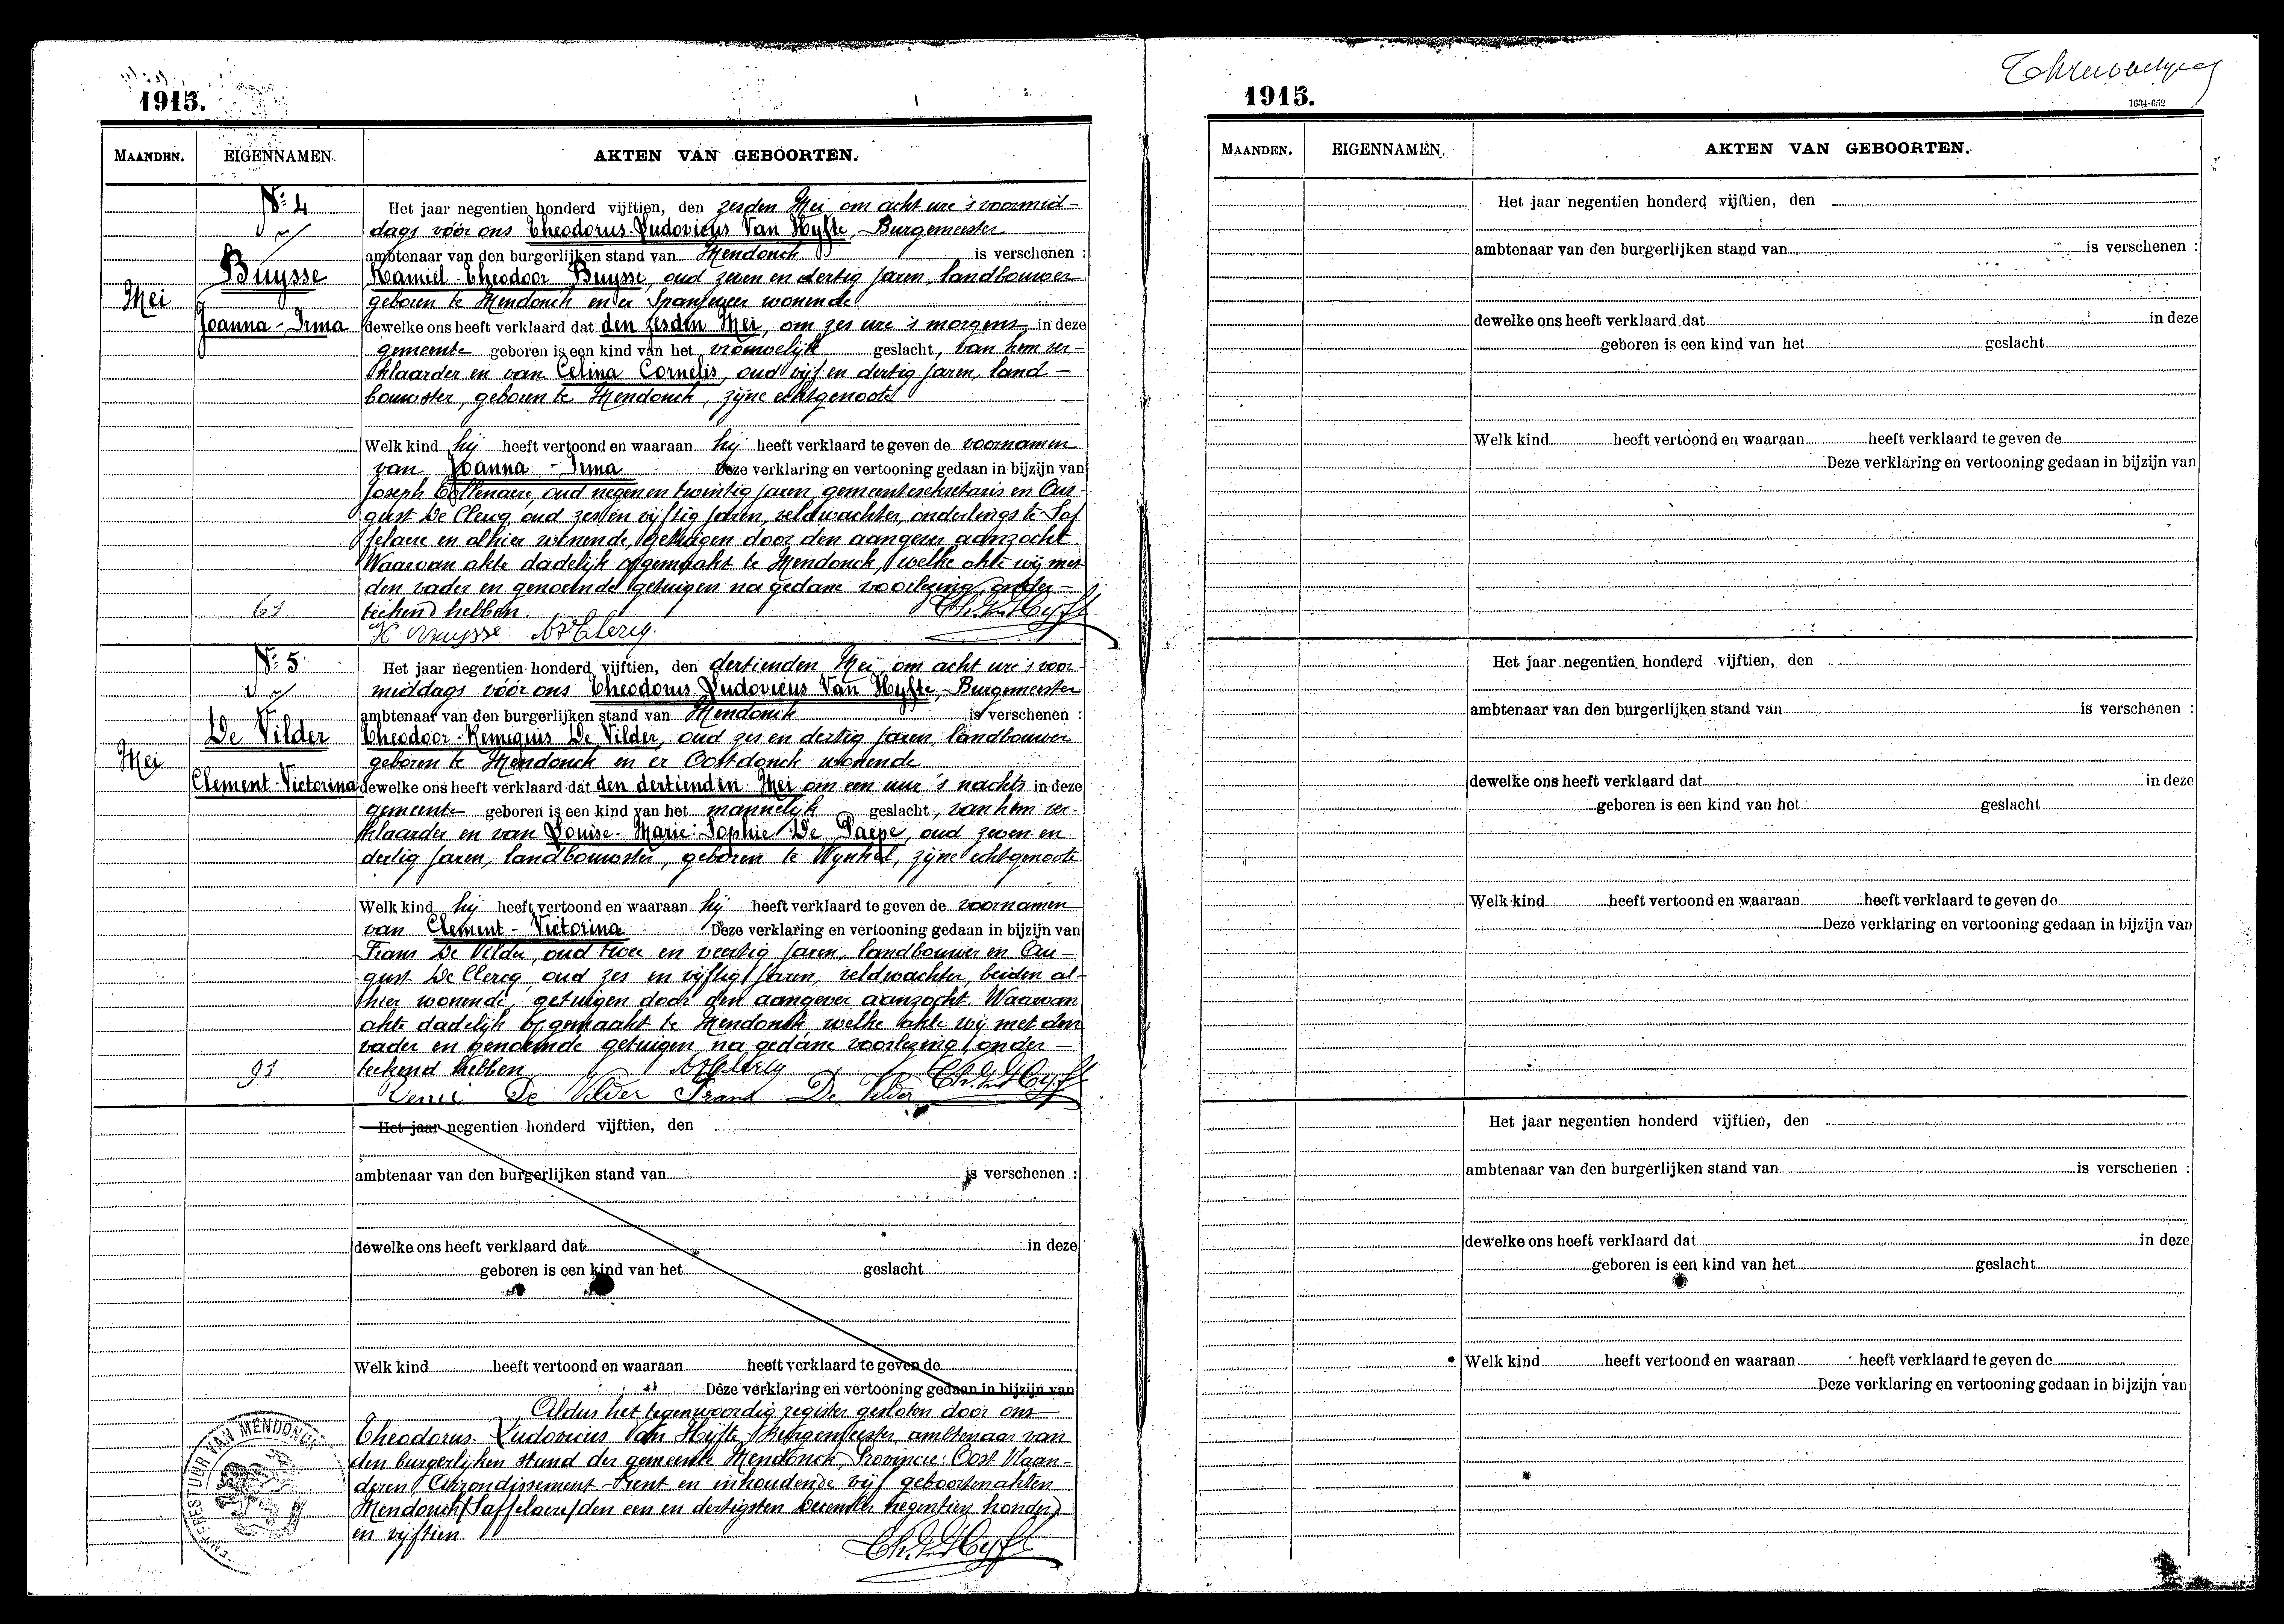 1915.
MAANDEN. EIGENNAMEN. AKTEN VAN GEBOORTEN.
Nº 4
Buysse
Mei
Joanna - Irma
61
Het jaar negentien honderd vijftien, den zesden Mei om acht ure 's voormid-
dags vóór ons Theodorus-Ludovicus Van Hyfte, Burgemeester
ambtenaar van den burgerlijken stand van Mendonck is verschenen :
Kamiel-Theodoor Buysse, oud zeven en dertig jaren, landbouwer
geboren te Mendonck en er Spanjeveer wonende
dewelke ons heeft verklaard dat den zesden Mei, om zes ure 's morgens in deze
gemeente geboren is een kind van het vrouwelijk geslacht, van hem ver-
klaarder en van Celina Cornelis, oud vijf en dertig jaren, land-
bouwster, geboren te Mendonck, zijne echtgenoote
Welk kind hij heeft vertoond en waaraan hij heeft verklaard te geven de voornamen
van Joanna - Irma Deze verklaring en vertooning gedaan in bijzijn van
Joseph oud negen en twintig jaren, gemeentesekretaris en Au-
gust De Clercq, oud zes en vijftig jaren, veldwachter, onderlings te Saf-
felaere en alhier wonende, getuigen door den aangever aanzocht.
Waarvan akte dadelijk opgemaakt te Mendonck, welke akte wij met
den vader en genoemde getuigen na gedane voorlezing onder-
teekend hebben
K Buysse A De Clercq. Th. V. Hyfte
Nº 5
De Vilder
Mei
Clement-Victorina
91
Het jaar negentien honderd vijftien, den dertienden Mei om acht ure 's voor-
middags vóór ons Theodorus Ludovicus Van Hyfte, Burgemeester
ambtenaar van den burgerlijken stand van Mendonck is verschenen :
Theodoor-Remigius De Vilder, oud zes en dertig jaren, landbouwer
geboren te Mendonck en er Oostdonck wonende
dewelke ons heeft verklaard dat den dertienden Mei om een uur 's nachts in deze
gemeente geboren is een kind van het mannelijk geslacht, van hem ver-
klaarder en van Louise-Marie-Sophie De Paepe, oud zeven en
dertig jaren, landbouwster, geboren te Wynkel, zijne echtgenoote
Welk kind hij heeft vertoond en waaraan hij heeft verklaard te geven de voornamen
van Clement - Victorina Deze verklaring en vertooning gedaan in bijzijn van
Frans De Vilder, oud twee en veertig jaren, landbouwer en Au-
gust De Clercq, oud zes en vijftig jaren, veldwachter, beiden al-
hier wonende, getuigen door den aangever aanzocht. Waarvan
akte dadelijk opgemaakt te Mendonck, welke akte wij met den
vader en genoemde getuigen na gedane voorlezing onder-
teekend hebben A De Clercq Th. V. Hyfte
Remi De Vilder Frans De Vilder
Het jaar negentien honderd vijftien, den
ambtenaar van den burgerlijken stand van is verschenen :
dewelke ons heeft verklaard dat in deze
geboren is een kind van het geslacht
Welk kind heeft vertoond en waaraan heeft verklaard te geven de
Deze verklaring en vertooning gedaan in bijzijn van
Aldus het tegenwoordig register gesloten door ons
Theodorus Ludovicus Van Hyfte, Burgemeester, ambtenaar van
den burgerlijken stand der gemeente Mendonck, Provincie: Oost Vlaan-
deren, Arrondissement Gent en inhoudende vijf geboortenakten
Mendonck (Saffelaere) den een en dertigsten December negentien honderd
en vijftien.
Th. V. Hyfte
GEMEENTEBESTUUR VAN MENDONCK
1915.
1634-652
MAANDEN. EIGENNAMEN. AKTEN VAN GEBOORTEN.
Het jaar negentien honderd vijftien, den
ambtenaar van den burgerlijken stand van is verschenen :
dewelke ons heeft verklaard dat in deze
geboren is een kind van het geslacht
Welk kind heeft vertoond en waaraan heeft verklaard te geven de
Deze verklaring en vertooning gedaan in bijzijn van
Het jaar negentien honderd vijftien, den
ambtenaar van den burgerlijken stand van is verschenen :
dewelke ons heeft verklaard dat in deze
geboren is een kind van het geslacht
Welk kind heeft vertoond en waaraan heeft verklaard te geven de
Deze verklaring en vertooning gedaan in bijzijn van
Het jaar negentien honderd vijftien, den
ambtenaar van den burgerlijken stand van is verschenen :
dewelke ons heeft verklaard dat in deze
geboren is een kind van het geslacht
Welk kind heeft vertoond en waaraan heeft verklaard te geven de
Deze verklaring en vertooning gedaan in bijzijn van